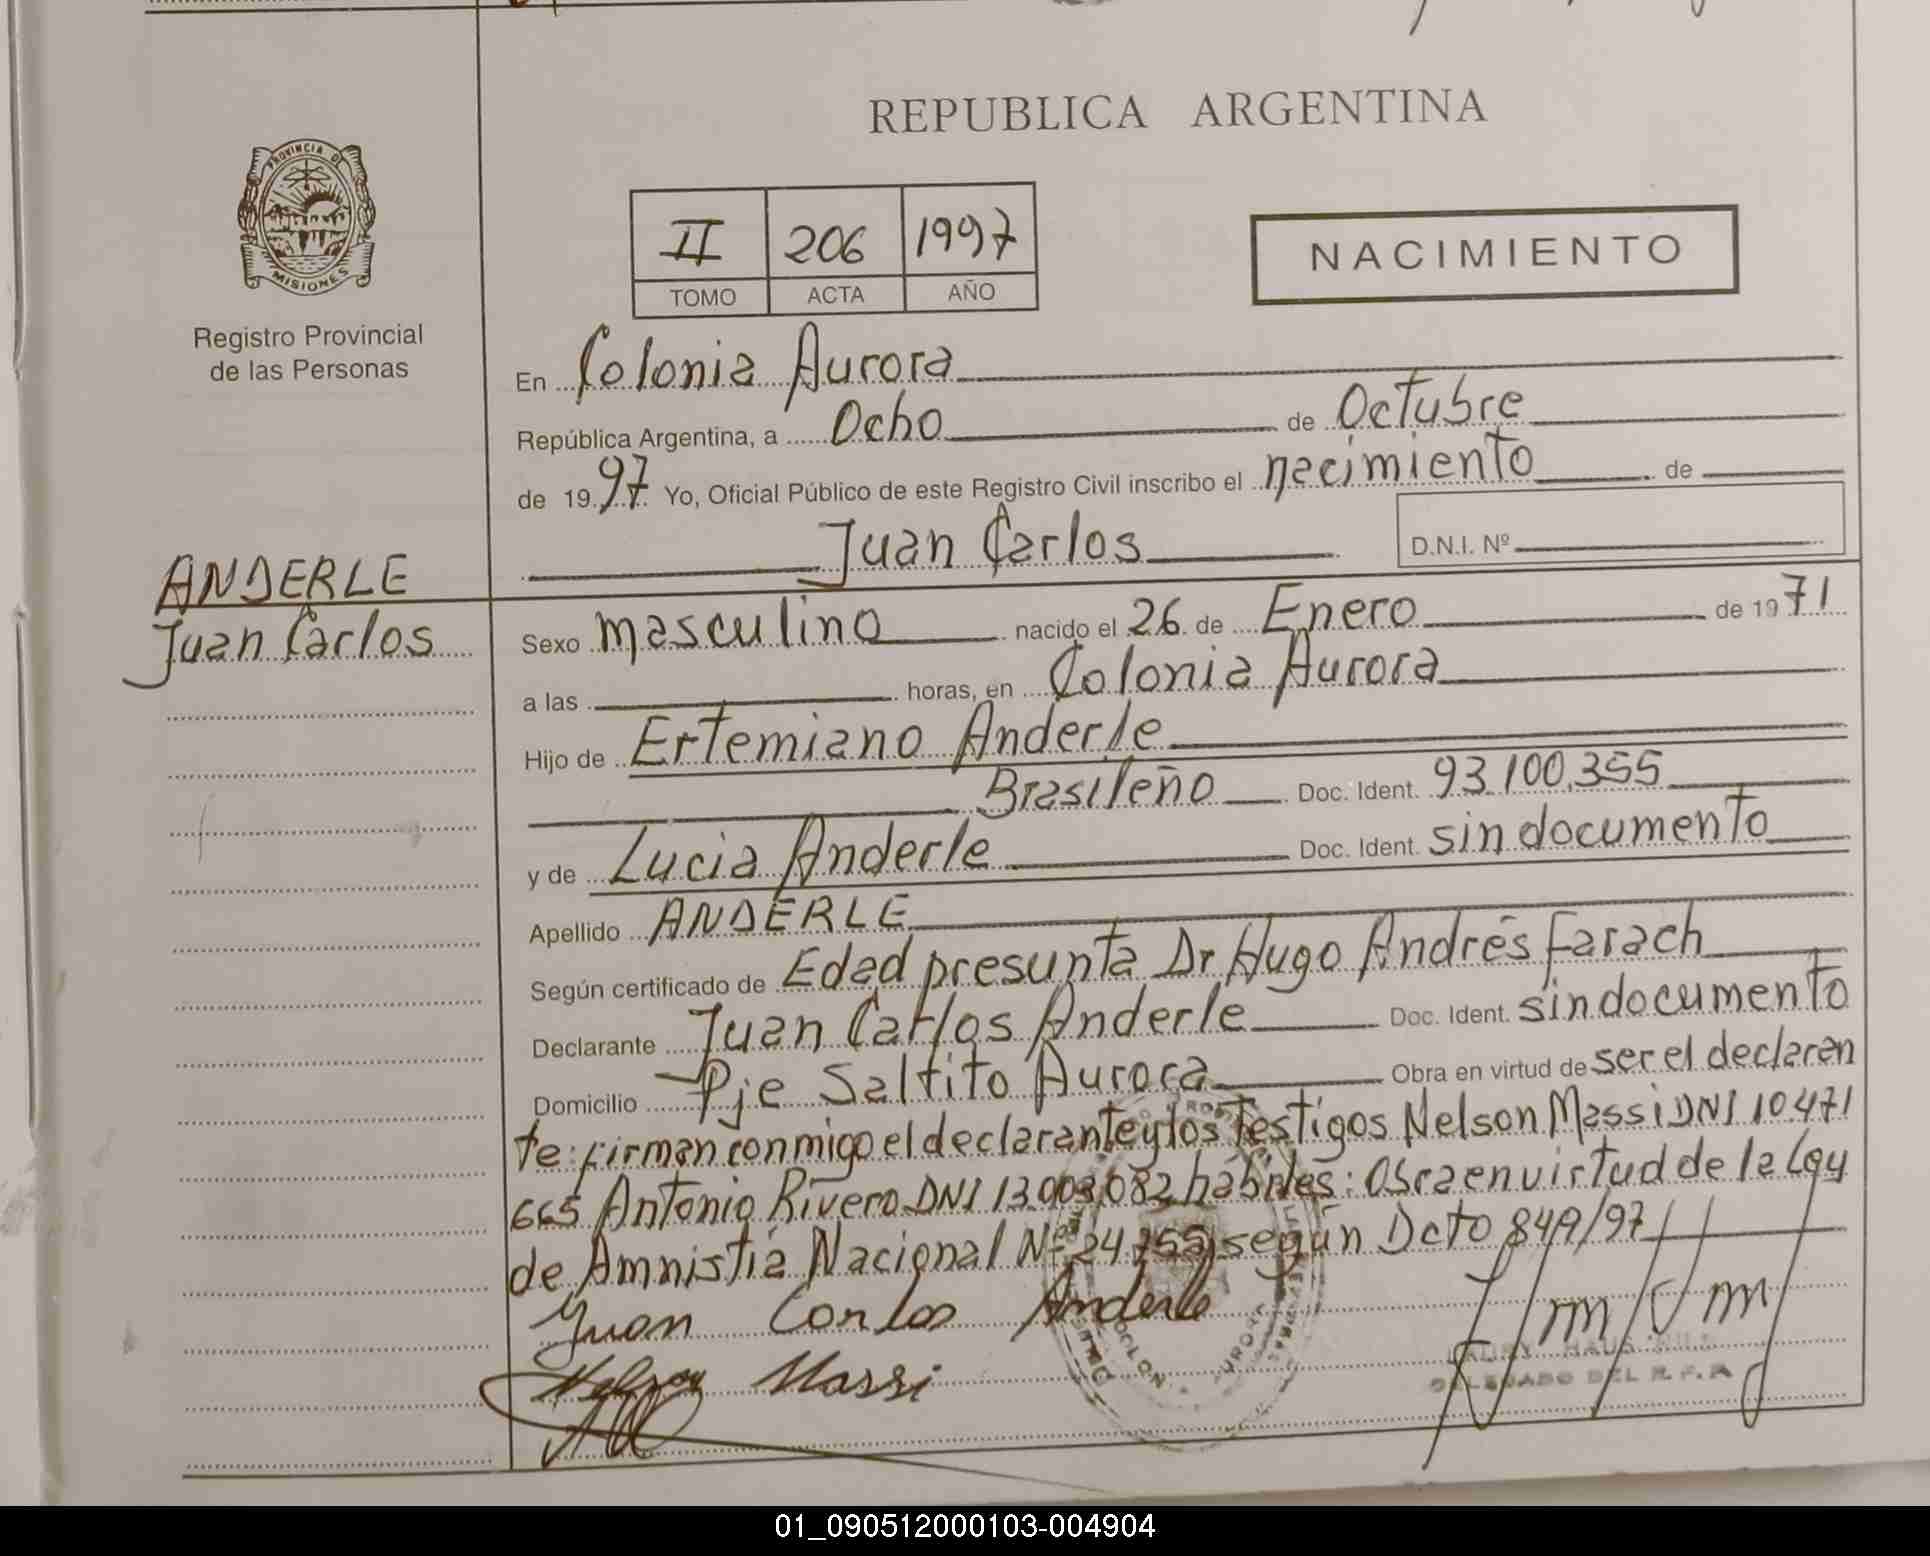 REPUBLICA ARGENTINA
PROVINCIA DE
MISIONES
Registro Provincial
de las Personas
II 206 1997
TOMO ACTA AÑO
NACIMIENTO
En Colonia Aurora
República Argentina, a Ocho de Octubre
de 1997 Yo, Oficial Público de este Registro Civil inscribo el nacimiento de
Juan Carlos D.N.I. Nº
ANDERLE
Juan Carlos
Sexo masculino nacido el 26 de Enero de 1971
a las horas, en Colonia Aurora
Hijo de Ertemiano Anderle
Brasileño Doc. Ident. 93.100.355
y de Lucia Anderle Doc. Ident. sin documento
Apellido ANDERLE
Según certificado de Edad presunta Dr Hugo Andrés Farach
Declarante Juan Carlos Anderle Doc. Ident. sin documento
Domicilio Pje Saltito Aurora Obra en virtud de ser el declaran
te: firman conmigo el declarante y los testigos Nelson Massi DNI 10.471
665 Antonio Rivero DNI 13.003.082 habiles: Obra en virtud de la Ley
de Amnistia Nacional Nº 24.755, según Dcto 849/97
Juan Carlos Anderle
Nelson Massi
DELEGADO DEL R.P.P.
01_090512000103-004904